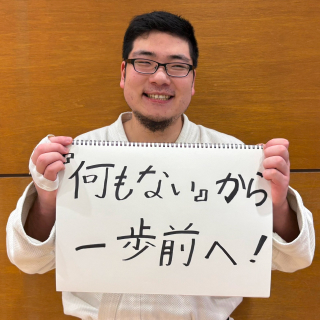 『何もない』から
一歩前へ!